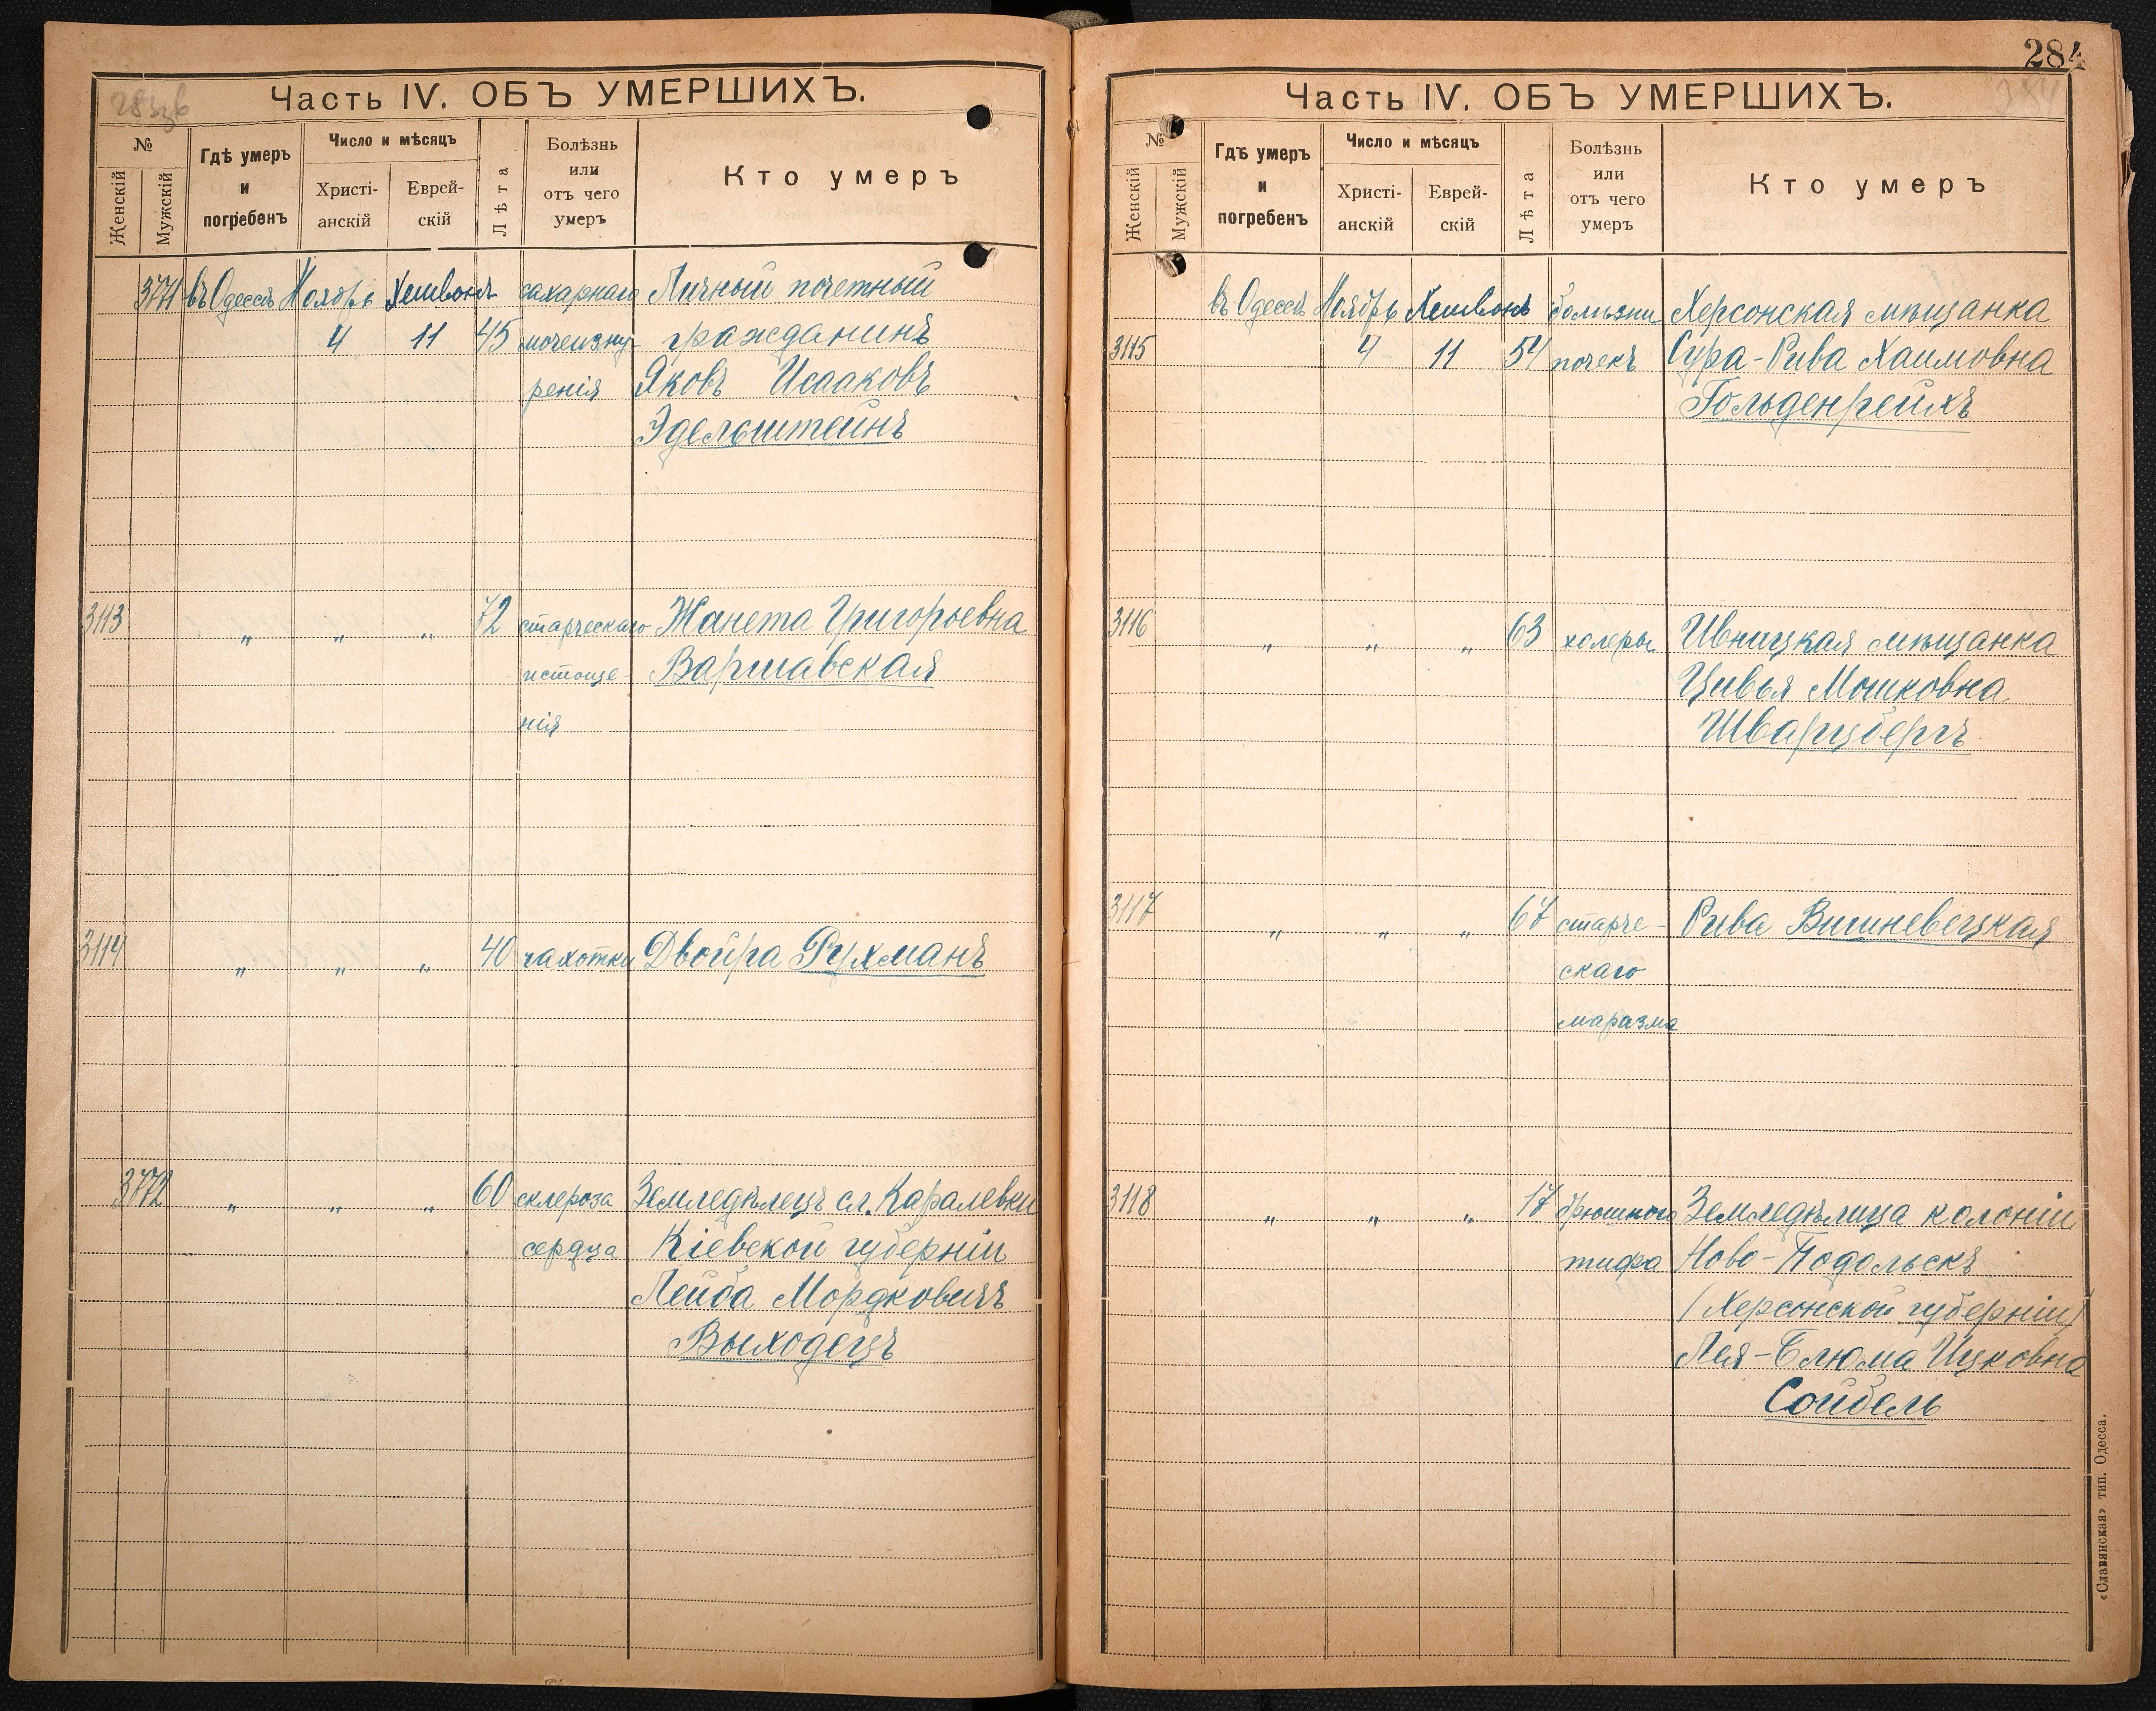 283об
Часть IV. ОБЪ УМЕРШИХЪ.
№
Женскій
Мужскій
Гдѣ умеръ и погребенъ
Число и мѣсяцъ
Христі-анскій
Еврей-скій
Лѣта
Болѣзнь или отъ чего умеръ
Кто умеръ
3771 въ Одессѣ Ноябрь Хешвонъ сахарнаго Личный почетный
4 11 45 мочеизну- гражданинъ
ренія Яковъ Исааковъ
Эдельштейнъ
3113 " " " 72 старческаго Жанета Григорьевна
истоще- Варшавская
нія
3114 " " " 40 чахотки Двойра Рухманъ
3772 " " " 60 склероза Земледѣлецъ сл. Каралевки
сердца Кіевской губерніи
Лейба Мордковичъ
Выходецъ
284
284
Часть IV. ОБЪ УМЕРШИХЪ.
№
Женскій
Мужскій
Гдѣ умеръ и погребенъ
Число и мѣсяцъ
Христі-анскій
Еврей-скій
Лѣта
Болѣзнь или отъ чего умеръ
Кто умеръ
въ Одессѣ Ноябрь Хешвонъ болѣзни Херсонская мѣщанка
3115 4 11 54 почекъ Сура-Рива Хаимовна
Гольденрейхъ
3116 " " " 63 холеры Ивницкая мѣщанка
Цивья Мошковна
Шварцбергъ
3117 " " " 67 старче- Рива Вишневецкая
скаго
маразма
3118 " " " 17 брюшного Земледѣлица колоніи
тифа Ново-Подольскъ
(Херсонской губерніи)
Лея-Блюма Ицковна
Сойбель
«Славянская» тип. Одесса.